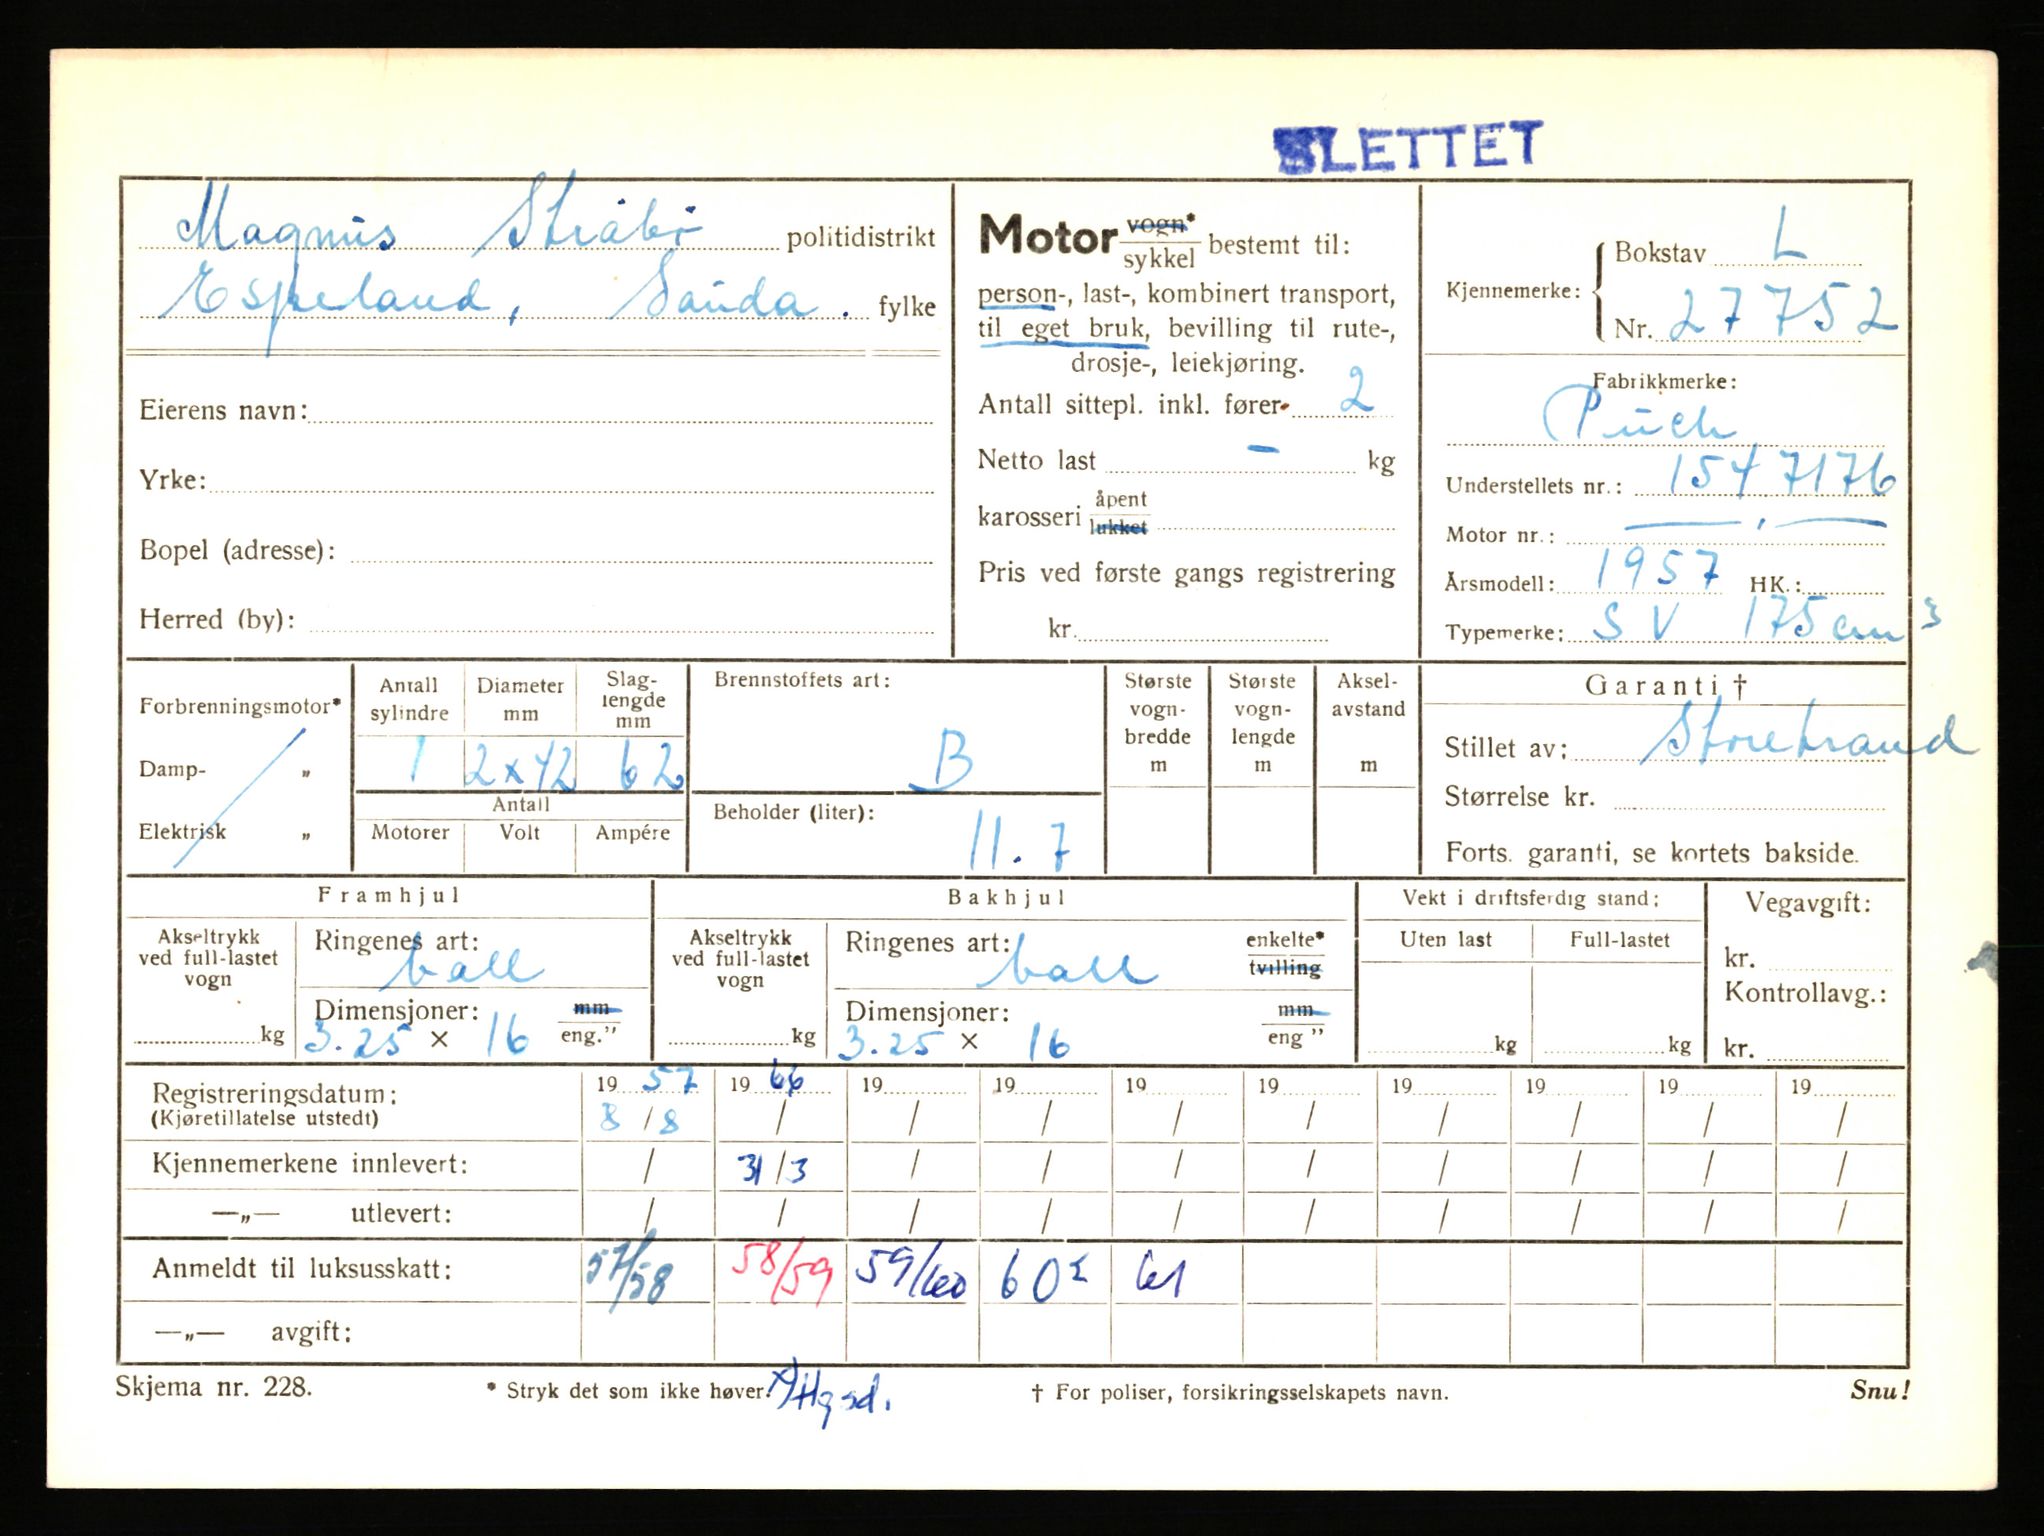 SLETTET
Magnus Stråbø politidistrikt
Espeland, Sauda. fylke
Eierens navn:
Yrke:
Bopel (adresse):
Herred (by):
Motor vogn* sykkel bestemt til:
person-, last-, kombinert transport,
til eget bruk, bevilling til rute-,
drosje-, leiekjøring.
Antall sittepl. inkl. fører 2
Netto last - kg
karosseri åpent lukket
Pris ved første gangs registrering
kr.
Kjennemerke: Bokstav L
Nr. 27752
Fabrikkmerke:
Puch
Understellets nr.: 1547176
Motor nr.: — , —
Årsmodell: 1957 HK.:
Typemerke: SV 175 cm3
Forbrenningsmotor*
Damp- „
Elektrisk „
Antall sylindre
Diameter mm
Slag-lengde mm
1 2x42 62
Antall
Motorer Volt Ampére
Brennstoffets art:
B
Beholder (liter):
11.7
Største vogn-bredde m
Største vogn-lengde m
Aksel-avstand m
Garanti †
Stillet av: Storebrand
Størrelse kr.
Forts. garanti, se kortets bakside.
Framhjul
Akseltrykk ved full-lastet vogn
kg
Ringenes art:
ball
Dimensjoner: mm
3.25 × 16 eng.”
Bakhjul
Akseltrykk ved full-lastet vogn
kg
Ringenes art: enkelte*
ball tvilling
Dimensjoner: mm
3.25 × 16 eng ”
Vekt i driftsferdig stand:
Uten last Full-lastet
kg kg
Vegavgift:
kr.
Kontrollavg.:
kr.
Registreringsdatum: 19 57 19 66 19 19 19 19 19 19 19 19
(Kjøretillatelse utstedt) 8/8 / / / / / / / / /
Kjennemerkene innlevert: / 31/3 / / / / / / / /
—„— utlevert: / / / / / / / / / /
Anmeldt til luksusskatt: 57/58 58/59 59/60 60 61
—„— avgift:
Skjema nr. 228.
* Stryk det som ikke høver.
† For poliser, forsikringsselskapets navn.
Snu!